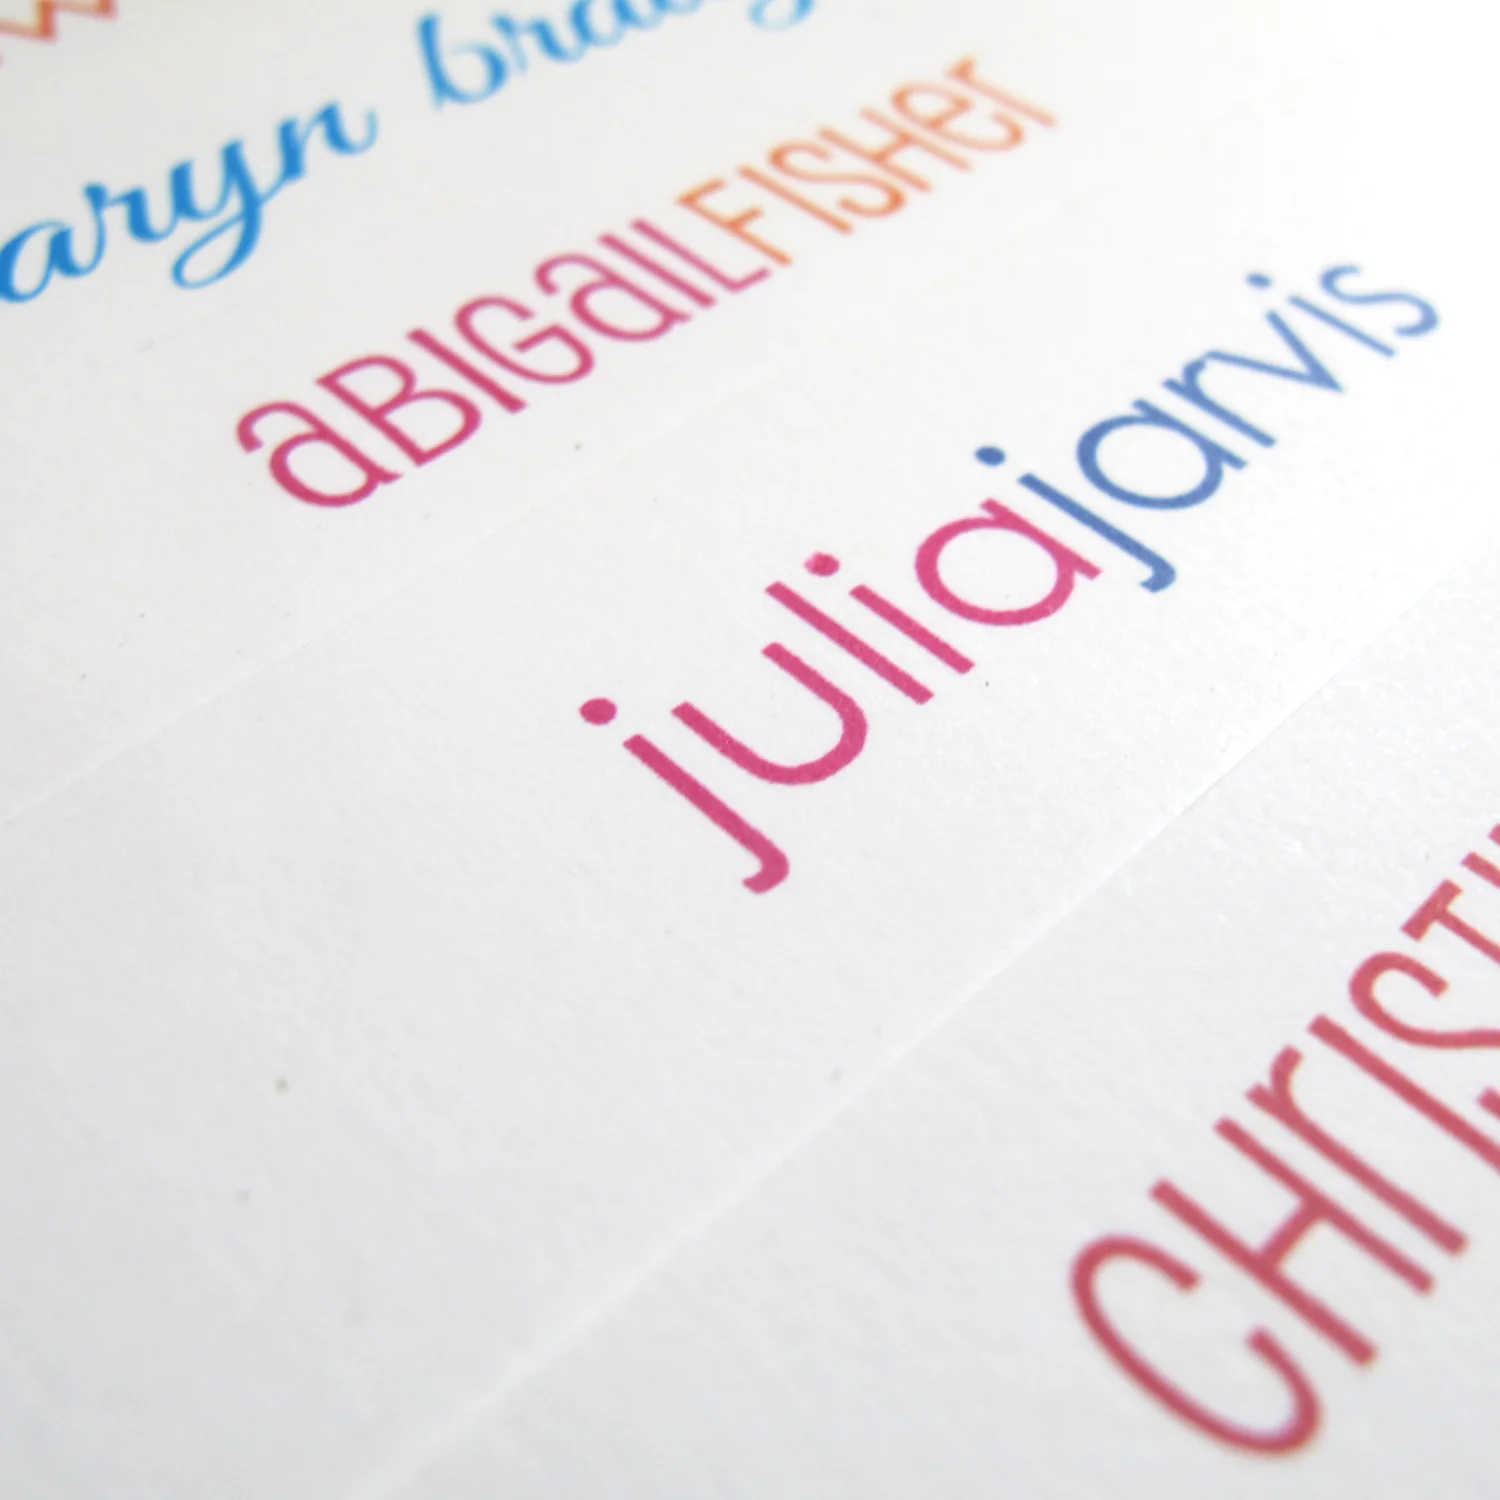 aryn
aBIGaILFISHer
juliajarvis
CHrIST